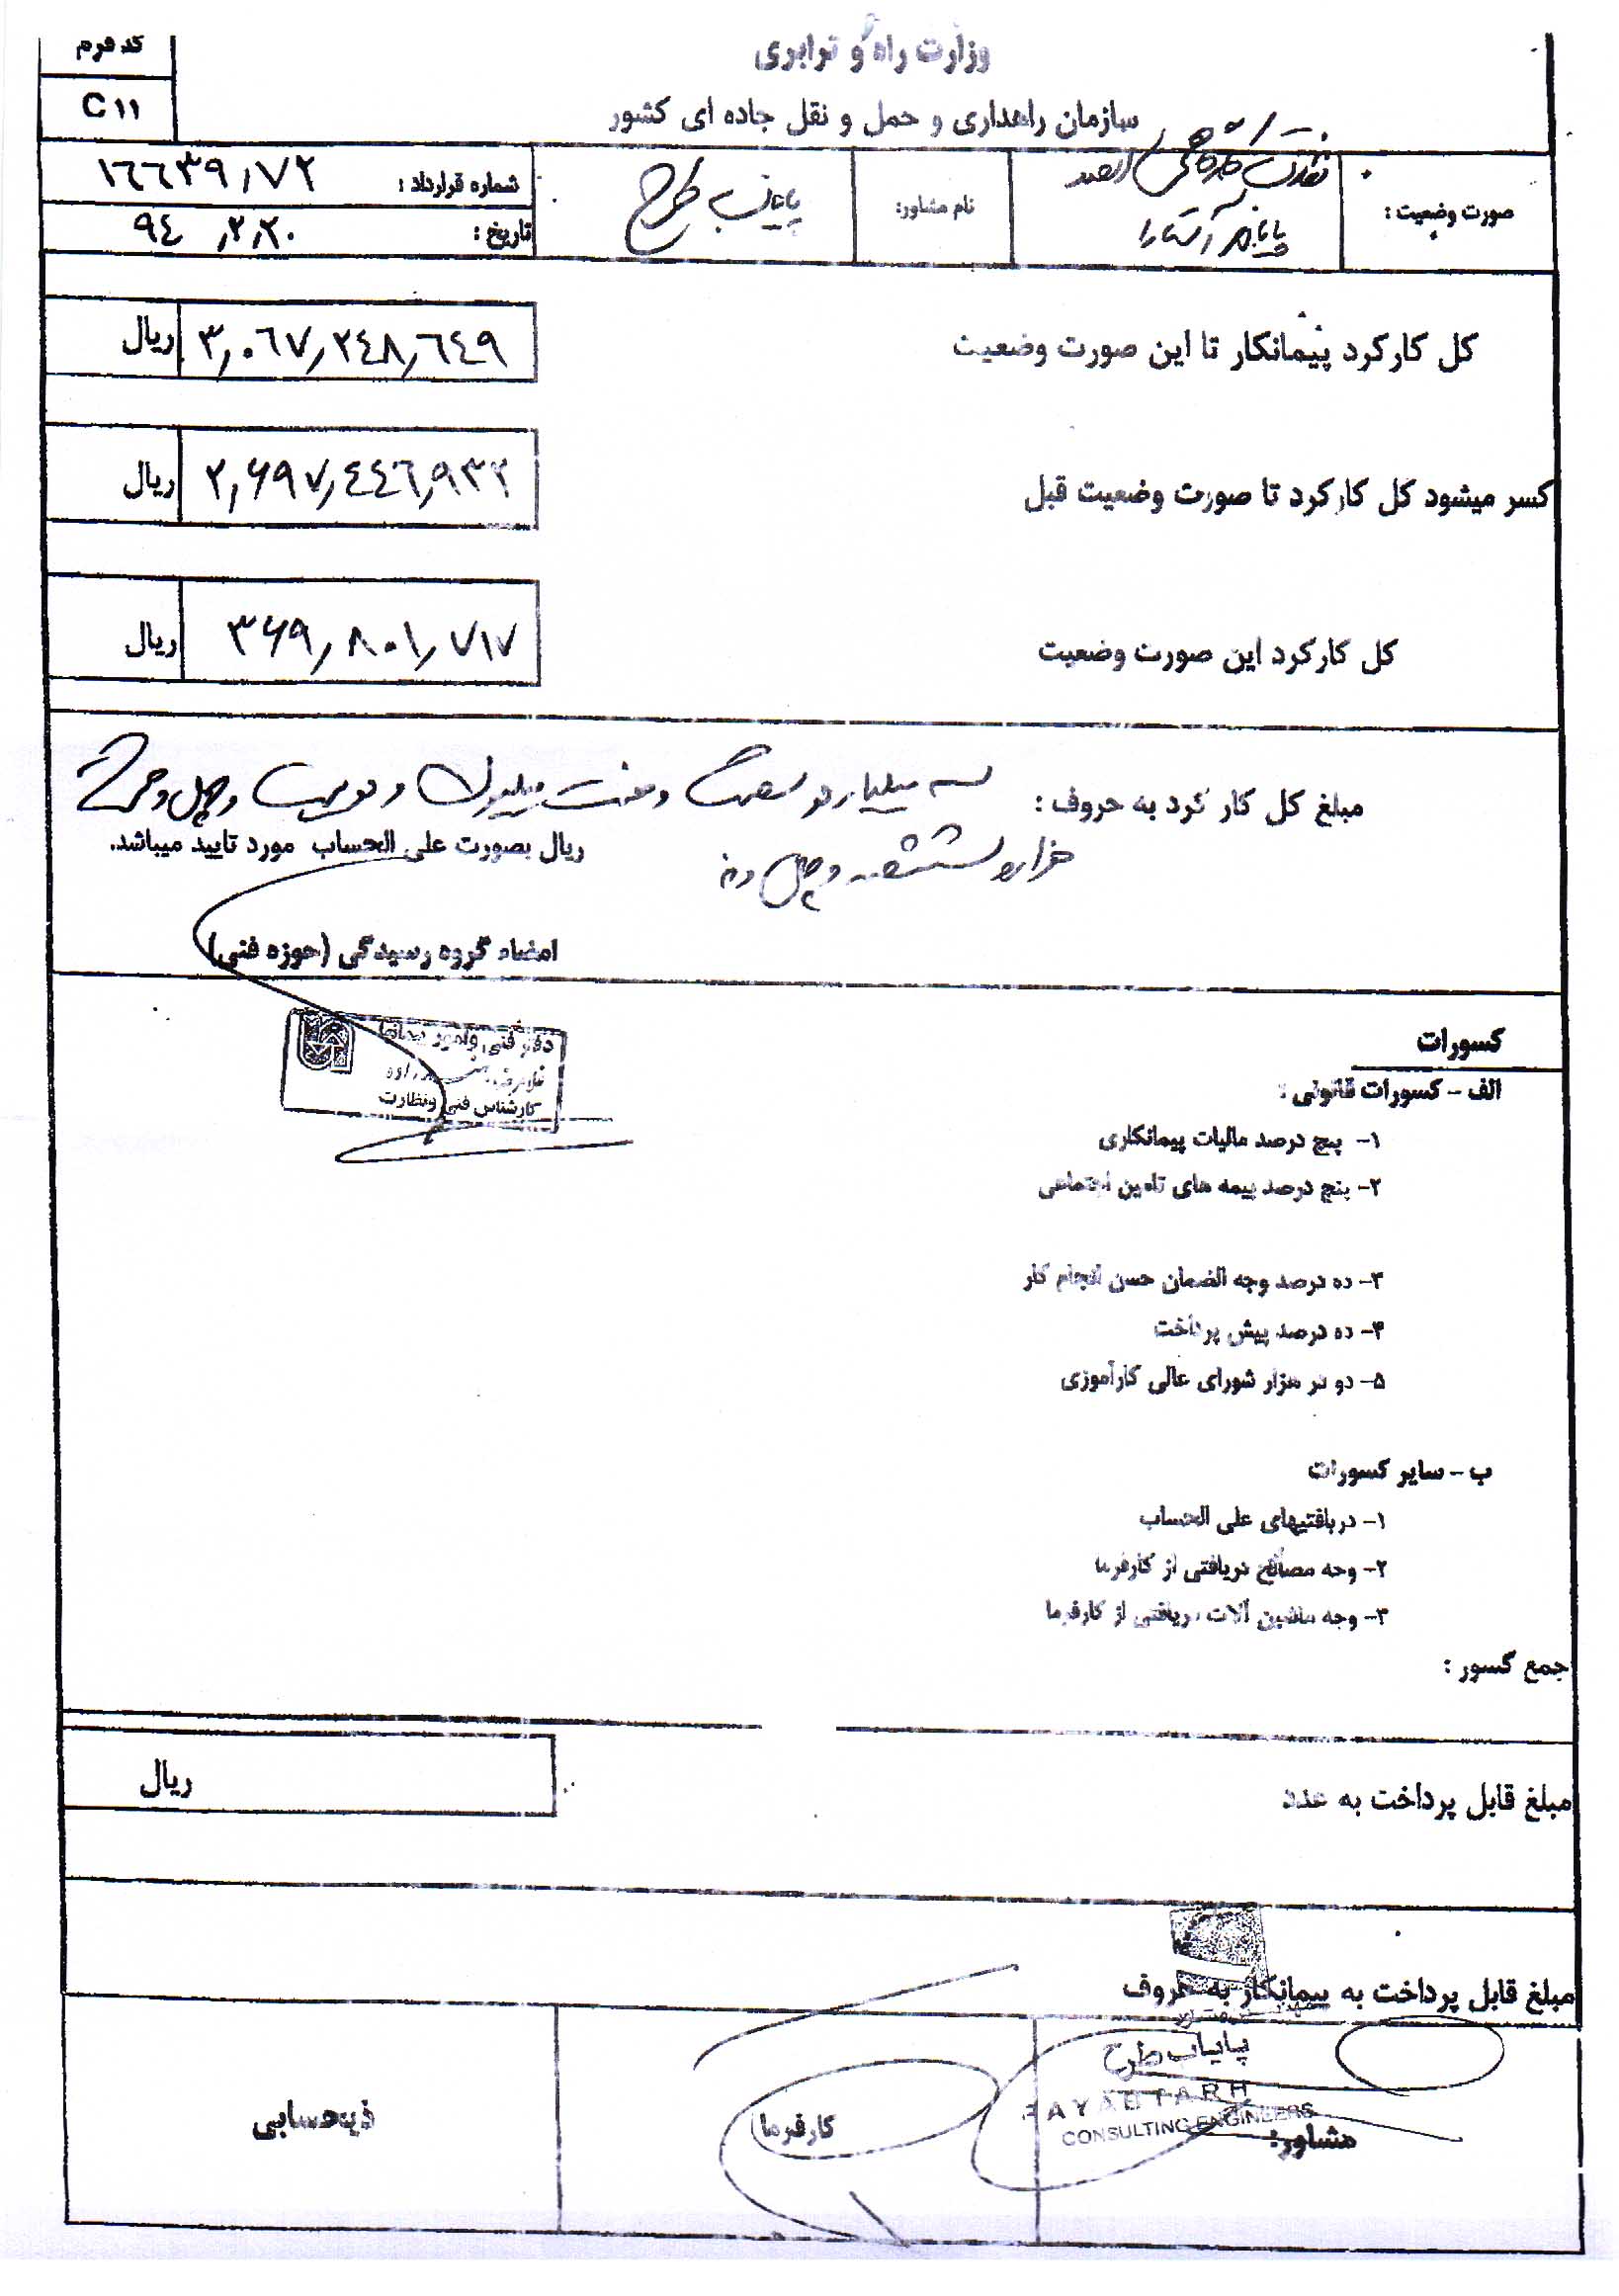 وزارت راه و ترابری
سازمان راهداری و حمل و نقل جاده ای کشور
کد فرم
C ۱۱
صورت وضعیت :
نظارت کارگاهی
پایانه آستارا
نام مشاور:
پایاب طرح
شماره قرارداد : ۱۶۶۳۹/۷۲
تاریخ : ۹۴/۲/۲۰
کل کارکرد پیمانکار تا این صورت وضعیت ۳/۰۶۷/۲۴۸/۶۴۹ ریال
کسر میشود کل کارکرد تا صورت وضعیت قبل ۲/۶۹۷/۴۴۶/۹۳۲ ریال
کل کارکرد این صورت وضعیت ۳۶۹/۸۰۱/۷۱۷ ریال
مبلغ کل کار کرد به حروف : سه میلیارد و شصت و هفت میلیون و دویست و چهل و هشت
هزار و ششصد و چهل و نه ریال بصورت علی الحساب مورد تایید میباشد.
امضاء گروه رسیدگی (حوزه فنی)
دفتر فنی و امور پیمانها
کارشناس فنی و نظارت
کسورات
الف - کسورات قانونی :
۱- پنج درصد مالیات پیمانکاری
۲- پنج درصد بیمه های تامین اجتماعی
۳- ده درصد وجه الضمان حسن انجام کار
۴- ده درصد پیش پرداخت
۵- دو در هزار شورای عالی کارآموزی
ب - سایر کسورات
۱- دریافتیهای علی الحساب
۲- وجه مصالح دریافتی از کارفرما
۳- وجه ماشین آلات دریافتی از کارفرما
جمع کسور :
مبلغ قابل پرداخت به عدد ریال
مبلغ قابل پرداخت به پیمانکار به حروف
پایاب طرح
PAYAB TARH
CONSULTING ENGINEERS
مشاور:
کارفرما
ذیحسابی